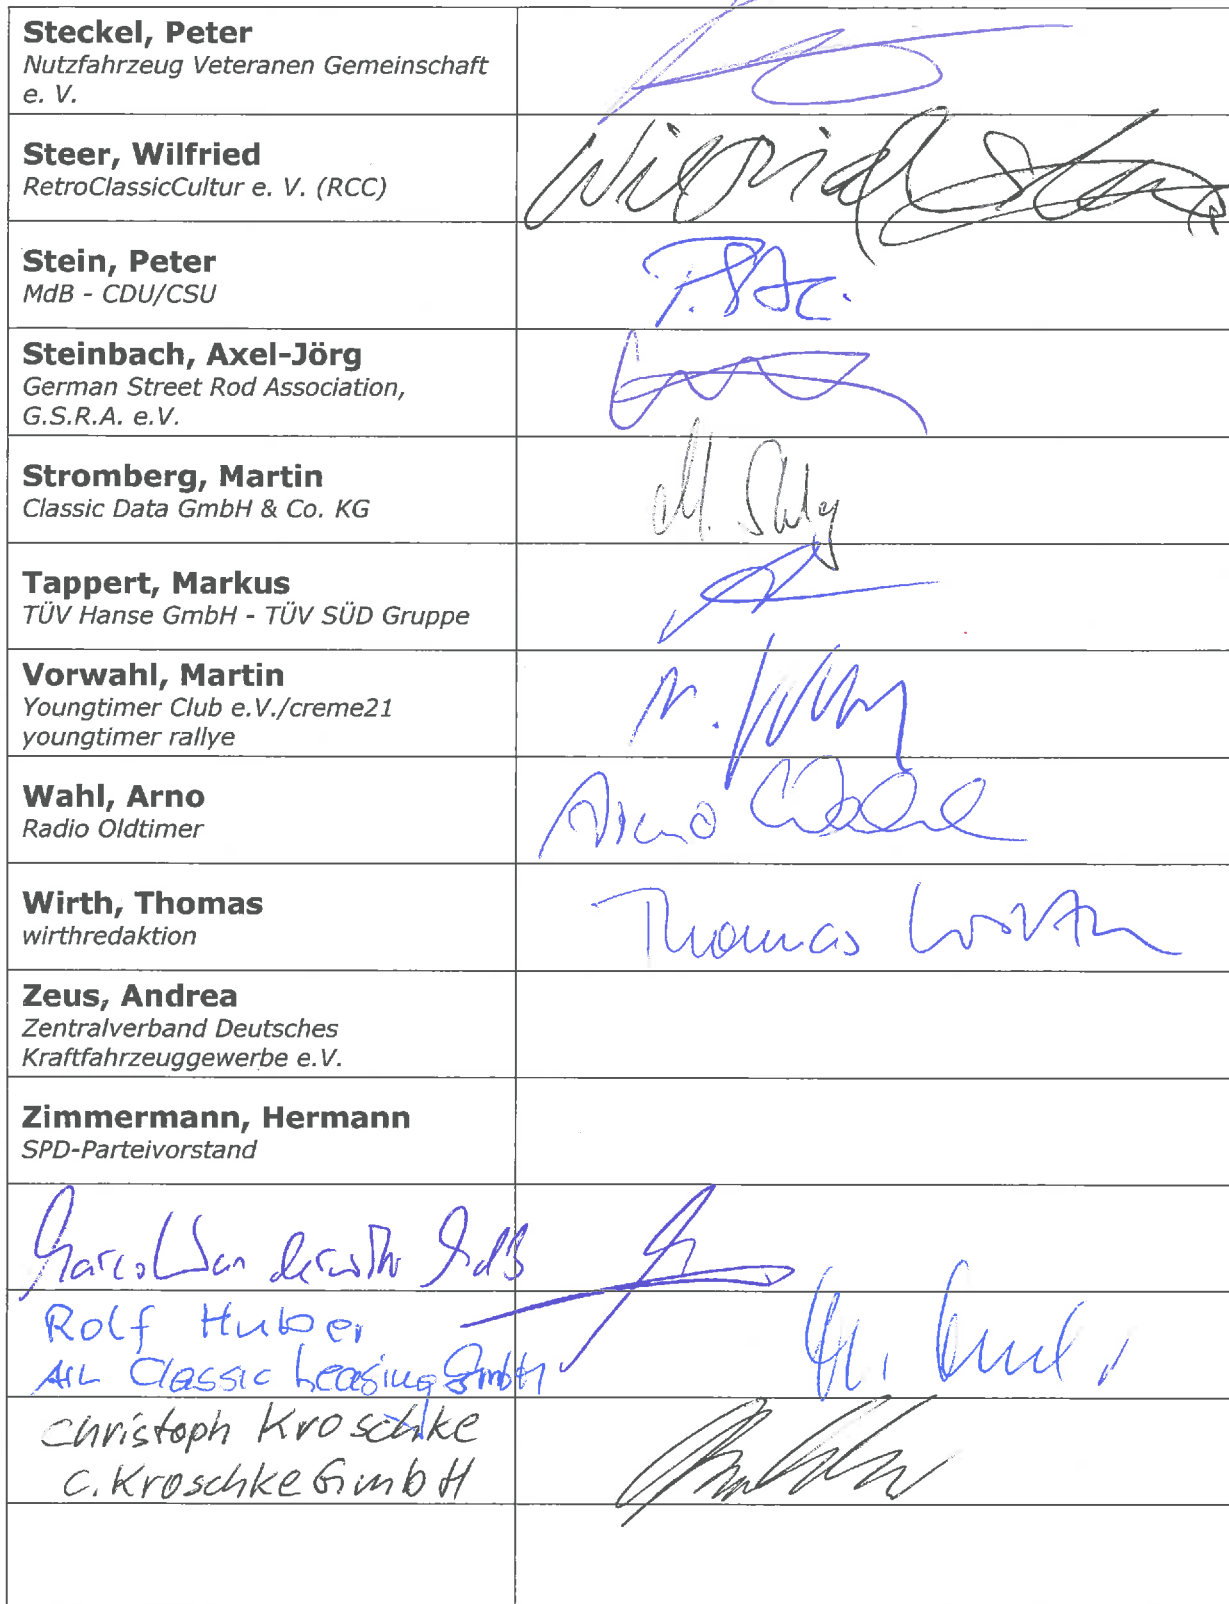 Steckel, Peter
Nutzfahrzeug Veteranen Gemeinschaft
e. V.
Steer, Wilfried
RetroClassicCultur e. V. (RCC)
Wilfried Steer
Stein, Peter
MdB - CDU/CSU
Steinbach, Axel-Jörg
German Street Rod Association,
G.S.R.A. e.V.
Stromberg, Martin
Classic Data GmbH & Co. KG
Tappert, Markus
TÜV Hanse GmbH - TÜV SÜD Gruppe
Vorwahl, Martin
Youngtimer Club e.V./creme21
youngtimer rallye
Wahl, Arno
Radio Oldtimer
Arno Wahl
Wirth, Thomas
wirthredaktion
Thomas Wirth
Zeus, Andrea
Zentralverband Deutsches
Kraftfahrzeuggewerbe e.V.
Zimmermann, Hermann
SPD-Parteivorstand
Marco Wanderwitz MdB
Rolf Huber
AIL Classic Leasing GmbH
Christoph Kroschke
C. Kroschke GmbH